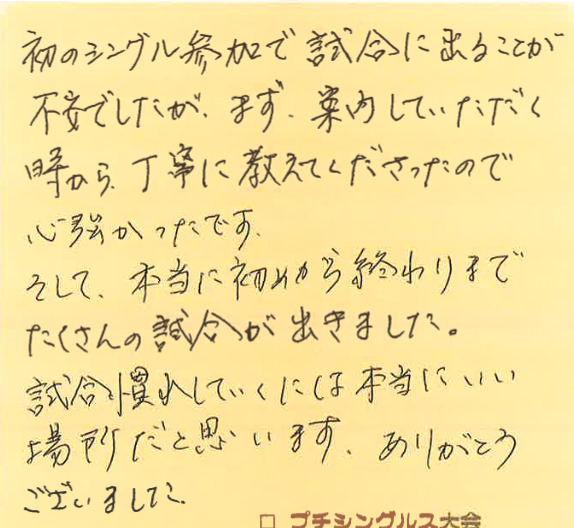 初のシングル参加で試合に出ることが
不安でしたが、まず、案内していただく
時から、丁寧に教えてくださったので
心強かったです。
そして、本当に初めから終わりまで
たくさんの試合が出きました。
試合慣れしていくには本当にいい
場所だと思います、ありがとう
ございました。
□ プチシングルス大会